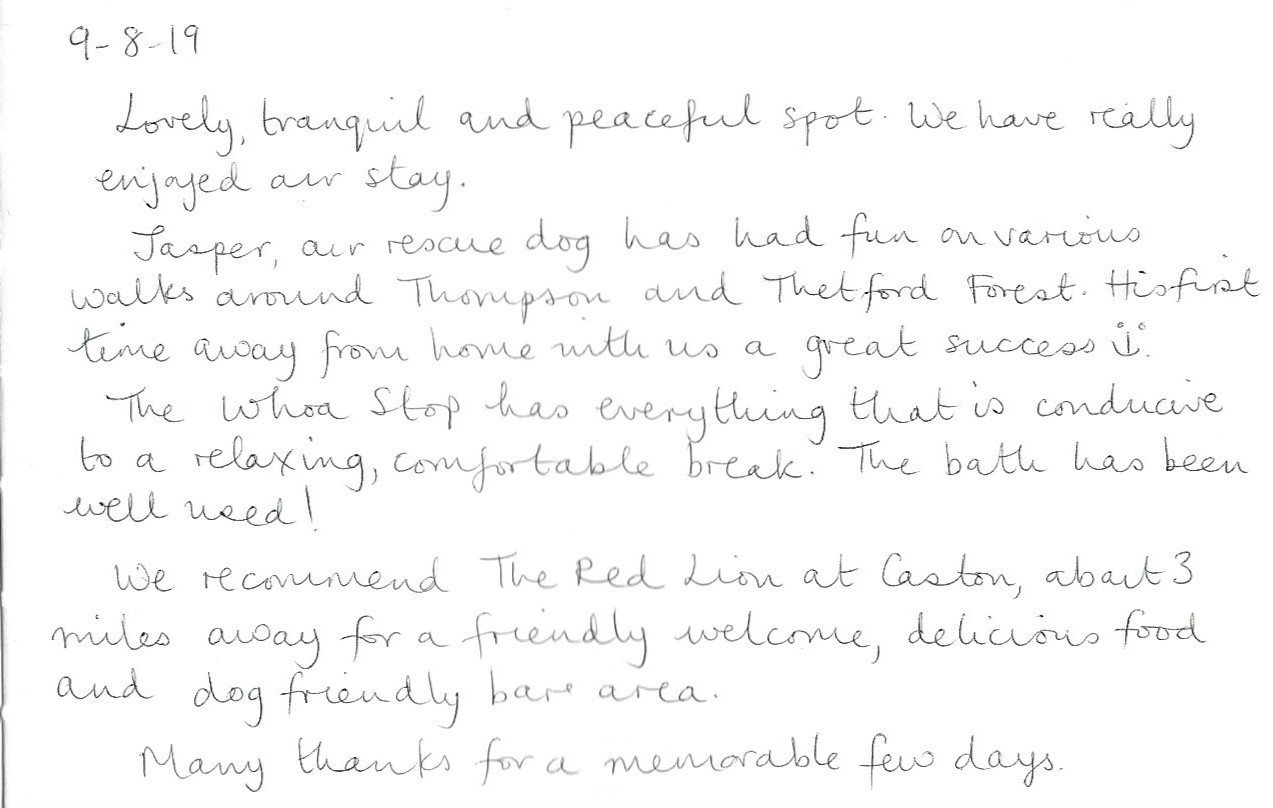 9-8-19
Lovely, tranquil and peaceful spot. We have really
enjoyed our stay.
Jasper, our rescue dog has had fun on various
walks around Thompson and Thetford Forest. His first
time away from home with us a great success
The Whoa Stop has everything that is conducive
to a relaxing, comfortable break. The bath has been
well used!
We recommend The Red Lion at Caston, about 3
miles away for a friendly welcome, delicious food
and dog friendly bar area.
Many thanks for a memorable few days.